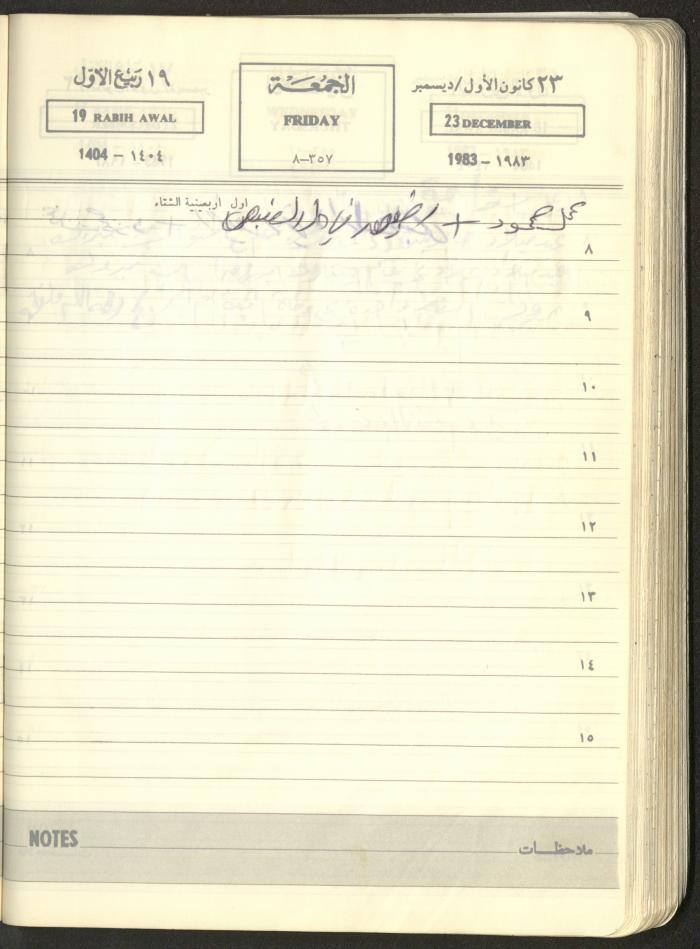 ١٩ ربيع الأول
الجمعة
٢٣ كانون الأول/ديسمبر
19 RABIH AWAL
FRIDAY
23 DECEMBER
1404 - ١٤٠٤
٨-٣٥٧
1983 - ١٩٨٣
اول اربعينية الشتاء
محمود +
٨
٩
١٠
١١
١٢
١٣
١٤
١٥
NOTES
ملاحظات